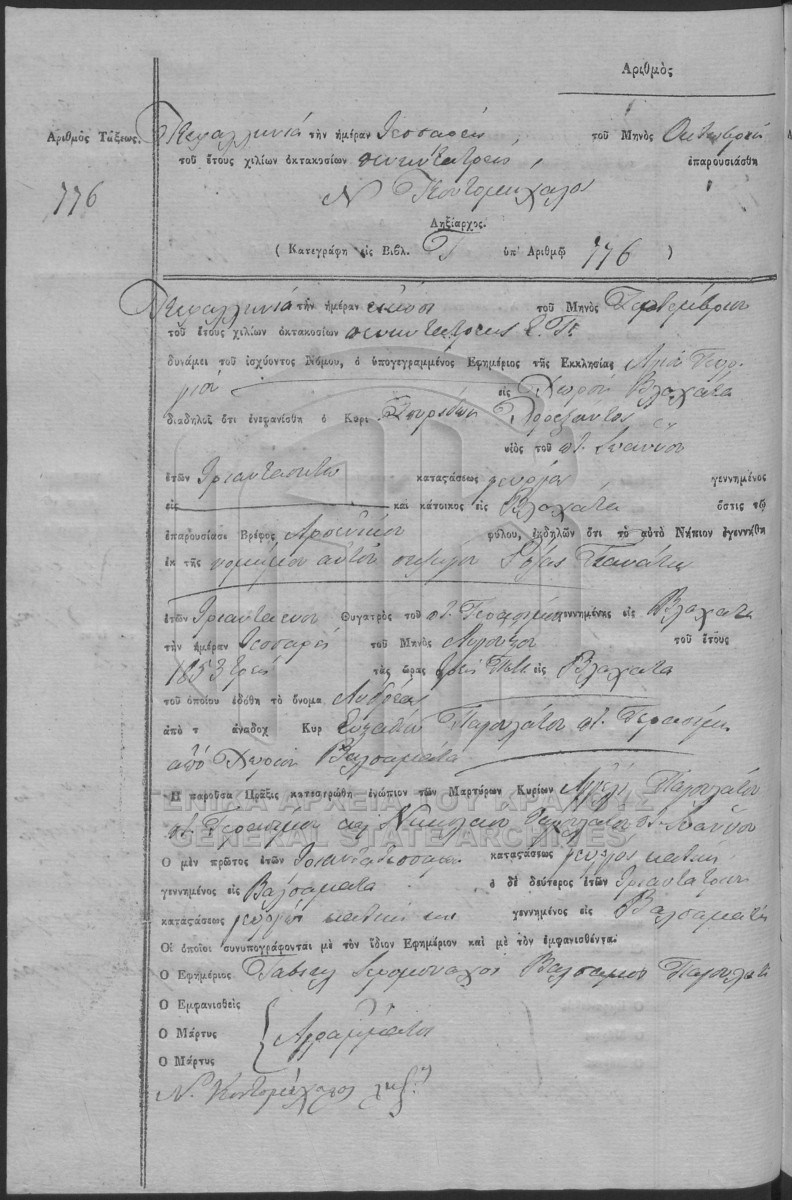 Αριθμὸς
Αριθμὸς Τάξεως.
776
Κεφαλληνία τὴν ἡμέραν τέσσαρες τοῦ Μηνὸς Οκτωβρίου
τοῦ ἔτους χιλίων ὀκτακοσίων πενῆντα τρεῖς, ἐπαρουσιάσθη
Ν Κοντομίχαλος
Ληξίαρχος.
( Κατεγράφη εἰς Βιβλ. Γ ὑπ' Αριθμῷ 776 )
Κεφαλληνία τὴν ἡμέραν είκοσι τοῦ Μηνὸς Σεπτεμβρίου
τοῦ ἔτους χιλίων ὀκτακοσίων πενήντατρεις Ε. Π.
δυνάμει τοῦ ἰσχύοντος Νόμου, ὁ ὑπογεγραμμένος Εφημέριος τῆς Εκκλησίας Αγίου Γεωρ
γίου εἰς Χωρίον Βλαχάτα
διαδηλοῖ ὅτι ἐνεφανίσθη ὁ Κυρὶ Σπυρίδων
υἱὸς τοῦ ποτ. Ιωάννου
ἐτῶν τριανταοκτώ κατασάσεως γεωργός γεννημένος
εἰς καὶ κάτοικος εἰς Βλαχάτα ὅστις τῷ
ἐπαρουσίασε Βρέφος Αρσενικού φύλου, ἐκδηλῶν ὅτι τὸ αὐτὸ Νήπιον ἐγεννήθη
ἐκ τῆς νομίμου αυτού συζύγου
ἐτῶν Τριανταενού Θυγατρὸς τοῦ ποτ. Γερασίμου γεννημένης εἰς Βλαχάτα
τὴν ἡμέραν Τέσσαρες τοῦ Μηνὸς Αυγούστου τοῦ ἔτους
1853 τρεις τὰς ὥρας τρεις Π.Μ. εἰς Βλαχάτα
τοῦ ὁποίου ἐδόθη τὸ ὄνομα Ανδρέας
ἀπὸ τ ἀνάδοχ Κυρ Ευσταθίου Παγουλάτου ποτ. Γερασίμου
από Χωρίον Βαλσαμάτα
Η παροῦσα Πρᾶξις κατεσρώθη ἐνώπιον τῶν Μαρτύρων Κυρίων Αγγελή Παγουλάτου
ποτ. Γερασίμου και Νικολάου Παγουλάτου ποτ. Ιωάννου
Ο μὲν πρῶτος ἐτῶν Τριαντατέσσαρων κατασάσεως γεωργός
γεννημένος εἰς Βαλσαμάτα ὁ δὲ δεύτερος ἐτῶν Τριαντατριών
κατασάσεως γεωργός γεννημένος εἰς Βαλσαμάτα
Οἱ ὁποῖοι συνυπογράφονται μὲ τὸν ἴδιον Εφημέριον καὶ μὲ τὸν ἐμφανισθέντα.
Ο Εφημέριος Γαβριηλ Ιερομοναχος Βαλσαμος Παγουλατος
Ο Εμφανισθεὶς
Ο Μάρτυς Αγράμματοι
Ο Μάρτυς
Ν. Κοντομίχαλος Ληξ.
ΓΕΝΙΚΑ ΑΡΧΕΙΑ ΤΟΥ ΚΡΑΤΟΥΣ
GENERAL STATE ARCHIVES